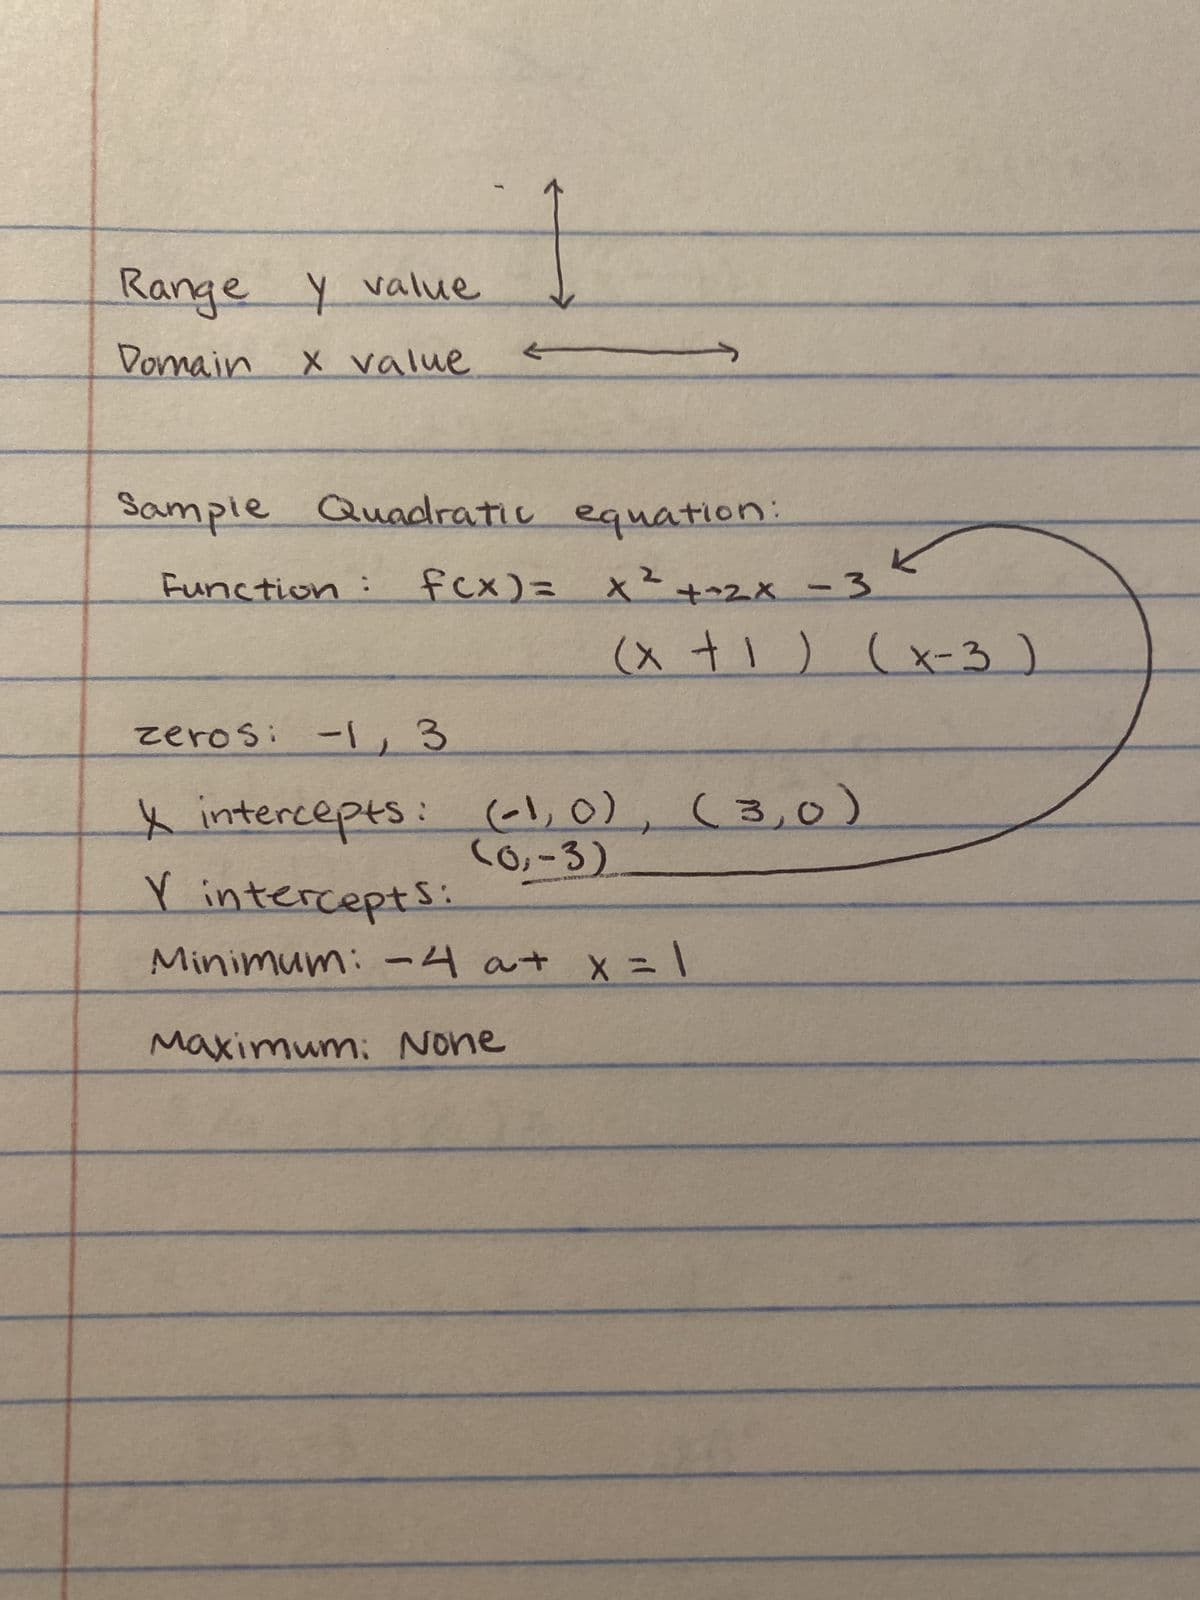 Range y value
Domain x value
Sample Quadratic equation:
Function: f(x)= x² +-2x -3
(x +1) (x-3)
zeros: -1, 3
X intercepts: (-1, 0), (3,0)
(0,-3)
Y intercepts:
Minimum: -4 at x=1
Maximum: None